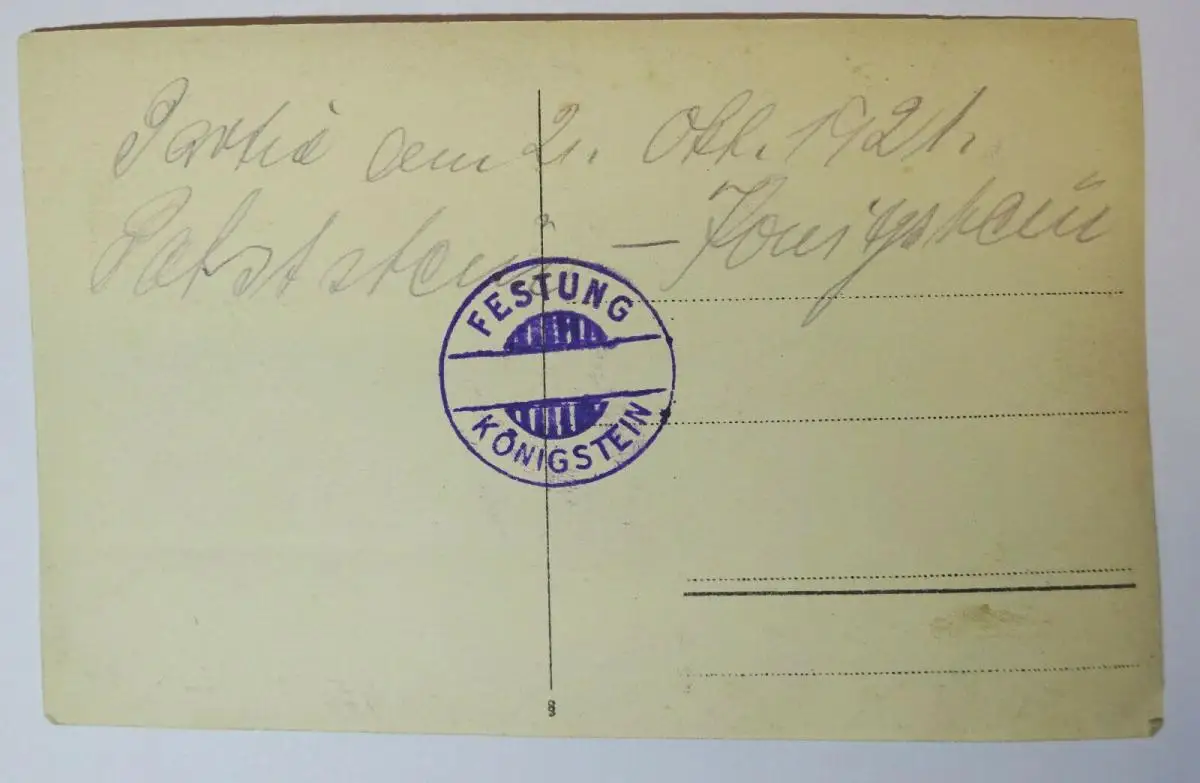 Partie am 2. Okt. 1921.
Pabststein – Königstein
FESTUNG
KÖNIGSTEIN